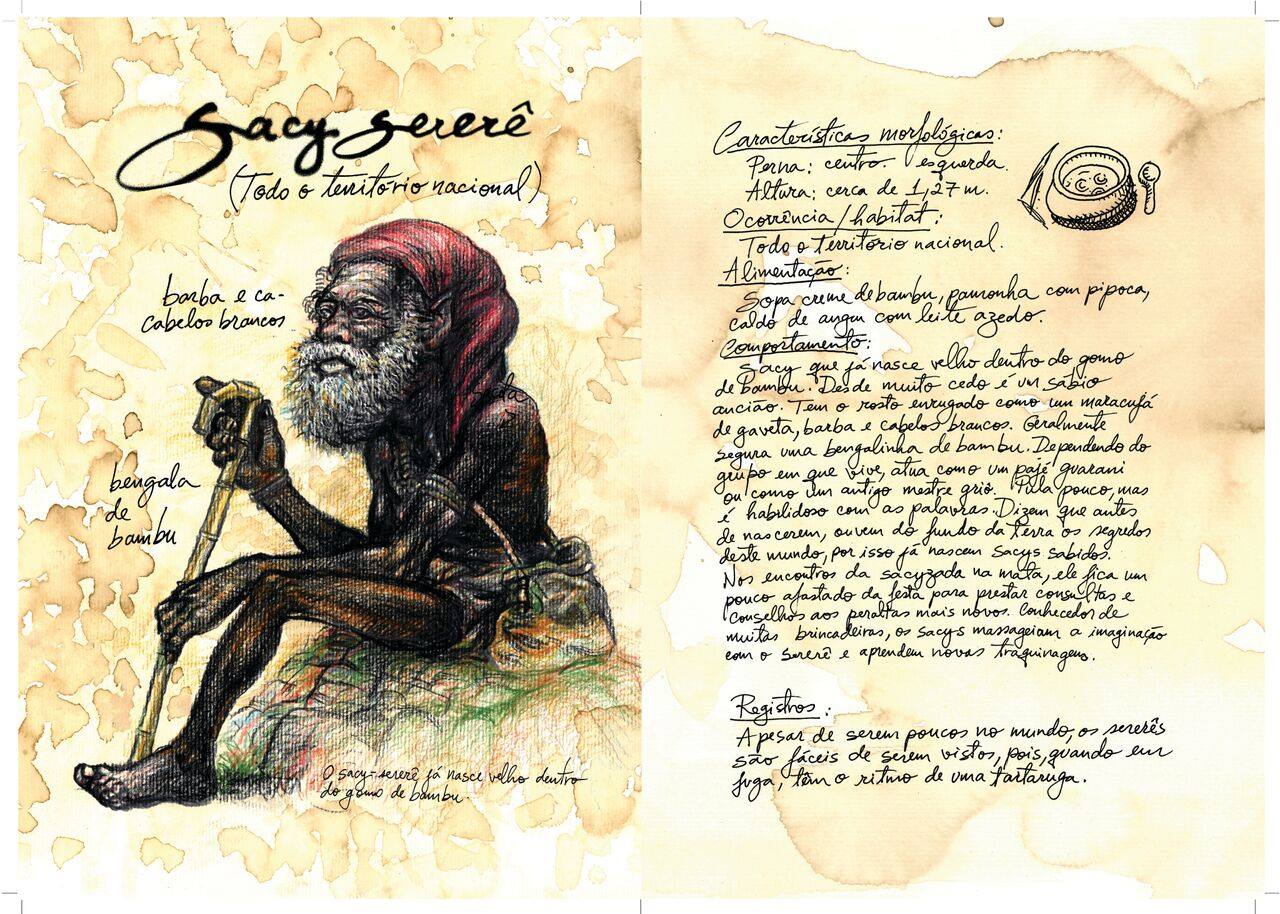 Sacy-Sererê
(Todo o território nacional)
barba e ca-
cabelos brancos
bengala
de
bambu
O sacy-sererê já nasce velho dentro
do gomo de bambu.
Características morfológicas:
Perna: centro-esquerda.
Altura: cerca de 1,27 m.
Ocorrência/habitat:
Todo o território nacional.
Alimentação:
Sopa creme de bambu, pamonha com pipoca,
caldo de angu com leite azedo.
Comportamento:
Sacy que já nasce velho dentro do gomo
de Bambu. Desde muito cedo é um sábio
ancião. Tem o rosto enrugado como um maracujá
de gaveta, barba e cabelos brancos. Geralmente
segura uma bengalinha de bambu. Dependendo do
grupo em que vive, atua como um pajé guarani
ou como um antigo mestre griô. Fala pouco, mas
é habilidoso com as palavras. Dizem que antes
de nascerem, ouvem do fundo da terra os segredos
deste mundo, por isso já nascem Sacys sabidos.
Nos encontros da sacyzada na mata, ele fica um
pouco afastado da festa para prestar consultas e
conselhos aos peraltas mais novos. Conhecedor de
muitas brincadeiras, os sacys massageiam a imaginação
com o sererê e aprendem novas traquinagens.
Registros:
Apesar de serem poucos no mundo, os sererês
são fáceis de serem vistos, pois, quando em
fuga, têm o ritmo de uma tartaruga.